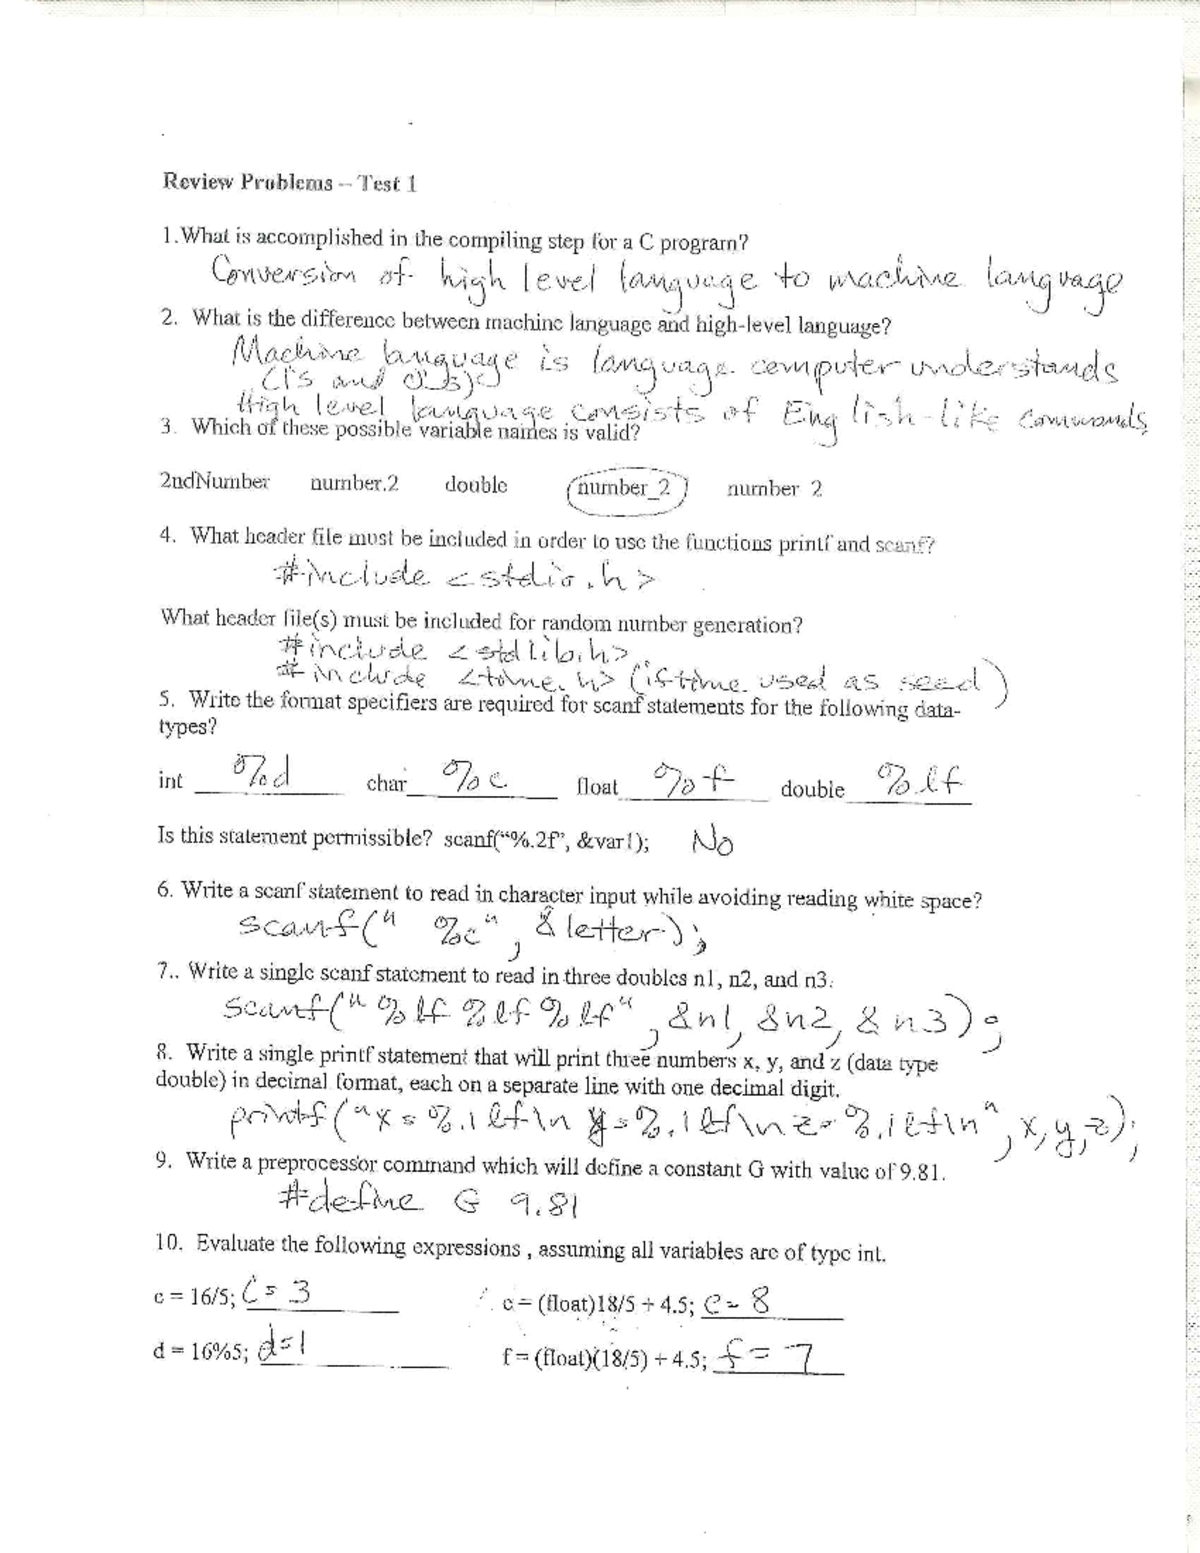 Review Problems – Test 1
1.What is accomplished in the compiling step for a C program?
Conversion of high level language to machine language
2. What is the difference between machine language and high-level language?
Machine language is language computer understands
(1's and 0's)
High level language consists of English-like commands
3. Which of these possible variable names is valid?
2ndNumber number.2 double number_2 number 2
4. What header file must be included in order to use the functions printf and scanf?
#include <stdio.h>
What header file(s) must be included for random number generation?
#include <stdlib.h>
#include <time.h> (if time used as seed)
5. Write the format specifiers are required for scanf statements for the following data-
types?
int %d char %c float %f double %lf
Is this statement permissible? scanf("%.2f", &var1); No
6. Write a scanf statement to read in character input while avoiding reading white space?
scanf(" %c", &letter);
7.. Write a single scanf statement to read in three doubles n1, n2, and n3.
scanf("%lf %lf %lf", &n1, &n2, &n3);
8. Write a single printf statement that will print three numbers x, y, and z (data type
double) in decimal format, each on a separate line with one decimal digit.
printf("x=%.1lf\n y=%.1lf\n z=%.1lf\n", x, y, z);
9. Write a preprocessor command which will define a constant G with value of 9.81.
#define G 9.81
10. Evaluate the following expressions , assuming all variables are of type int.
c = 16/5; c = 3 e = (float)18/5 + 4.5; e = 8
d = 16%5; d=1 f = (float)(18/5) + 4.5; f = 7